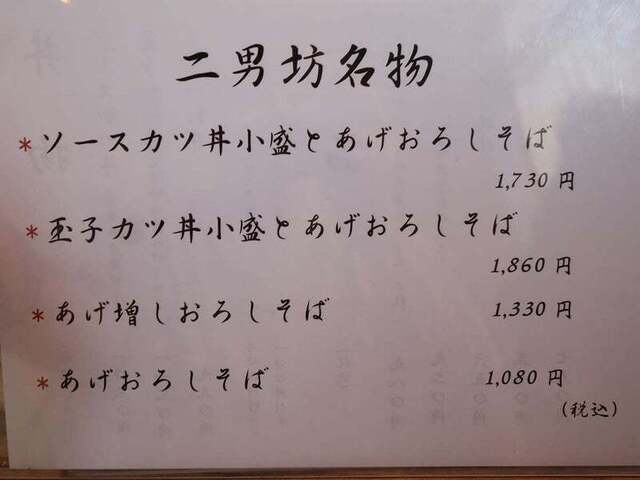 二男坊名物
*ソースカツ丼小盛とあげおろしそば
1,730 円
*玉子カツ丼小盛とあげおろしそば
1,860 円
*あげ増しおろしそば 1,330 円
*あげおろしそば 1,080 円
(税込)